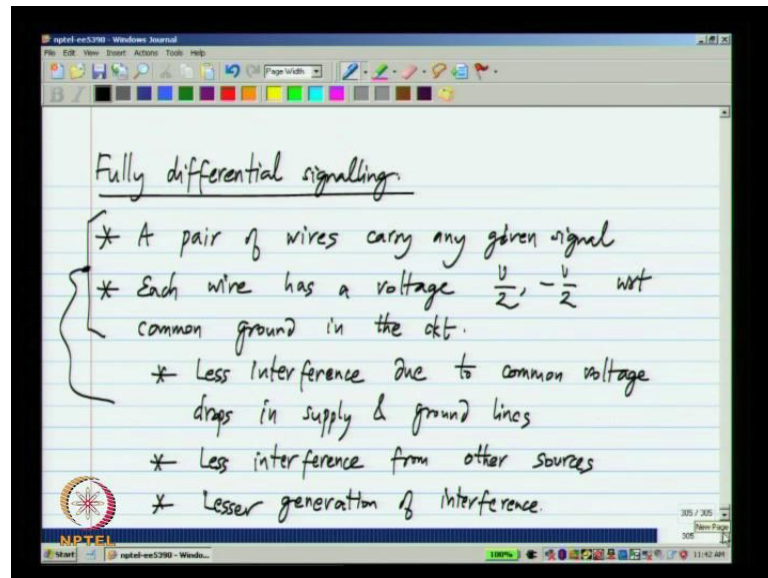 nptel-ee5390 - Windows Journal
File Edit View Insert Actions Tools Help
Page Width
B I
Fully differential signalling.
* A pair of wires carry any given signal
* Each wire has a voltage v/2, -v/2 wrt
common ground in the ckt.
* Less interference due to common voltage
drops in supply & ground lines
* Less interference from other sources
* Lesser generation of interference.
NPTEL
305 / 305
New Page
305
Start
nptel-ee5390 - Windo...
100%
11:42 AM